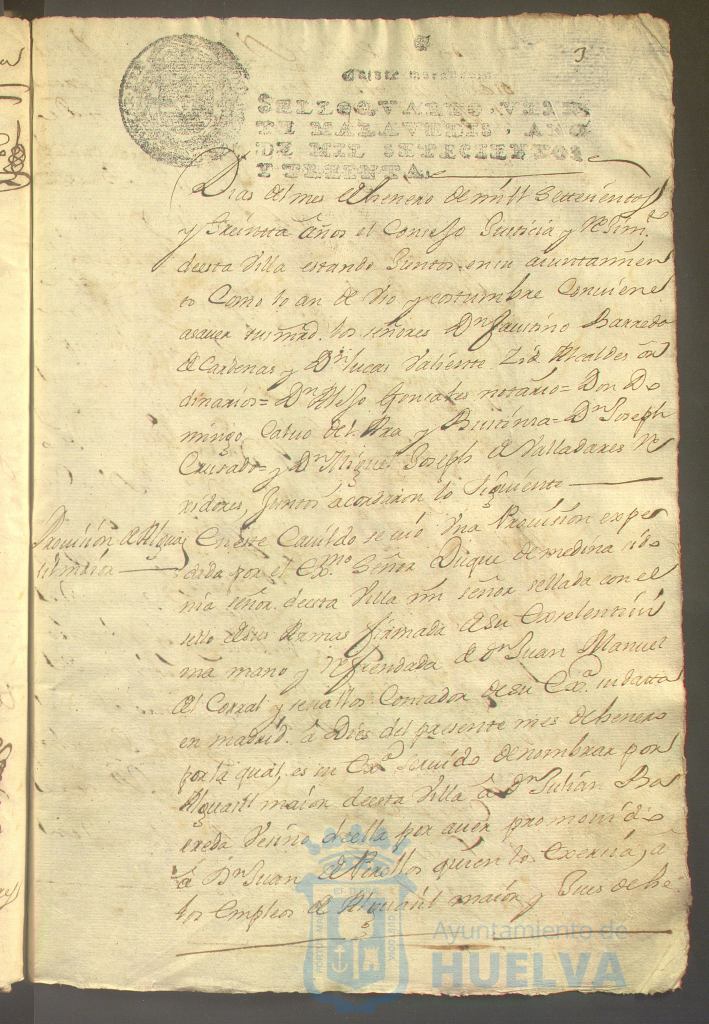 3
Veinte maravedis
SELLO QVARTO, VEIN
TE MARAVEDIS, AÑO
DE MIL SETECIENTOS
Y TREINTA.
Dias del mes de henero de mill Settecientos
y treintta años el Consejo Justicia y Reximto
deesta Villa estando Juntos en su aiuntamien
to Como lo an de Uso y costumbre Conviene
asauer sus mrd. los señores Dn faustino Barreda
de Cardenas y Dn lucas Valiente Alcaldes or
dinarios = Dn Gonzales notario = Don Do
mingo Caluo del y = Dn Joseph
Cruzado = y Dn Miguel Joseph de Valladares Re
xidores, Juntos acordaron lo siguiente
Provision de Alguaz
il maior
En este Cauildo se vio Una Provision expe
dida por el Exmo Señor Duque de medina sido
nia señor deesta Villa mi señor sellada con el
sello de sus Armas firmada de su Exselentissi
ma mano y Refrendada de Dn Juan Manuel
del Corral y seuallos Contador de su Exa. su data
en madrid a Dies del presente mes de henero
por la qual, es su Exa seruido de nombrar por
Alguasil maior deesta Villa a Dn Julian Ba
rreda Vesino de ella por auer promouido
a Dn Juan de quien lo exercia, a
los empleos de Alguasil maior y Jues de he
Ayuntamiento de
HUELVA